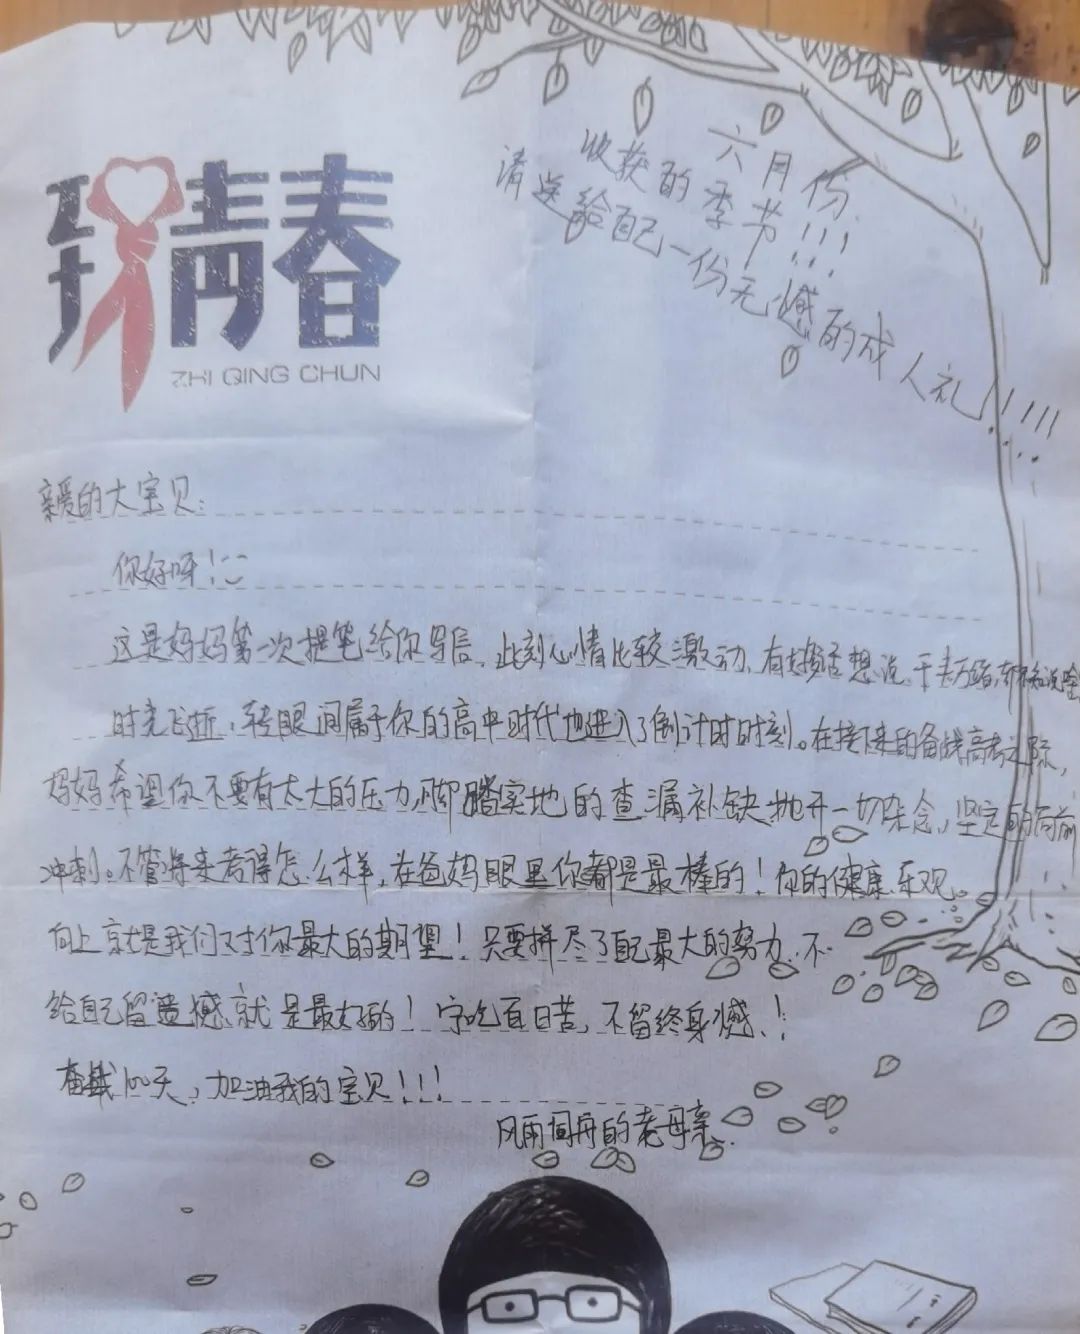 致青春
ZHI QING CHUN
六月份
收获的季节!!!
请送给自己一份无憾的成人礼!!!!!
亲爱的大宝贝:
你好呀!
这是妈妈第一次提笔给你写信,此刻心情比较激动,有好多话想说,千头万绪,却不知说啥
时光飞逝,转眼间属于你的高中时代也进入了倒计时时刻。在接下来的备战高考之际,
妈妈希望你不要有太大的压力,脚踏实地的查漏补缺,抛开一切杂念,坚定的向前
冲刺。不管将来考得怎么样,在爸妈眼里你都是最棒的!你的健康、乐观、
向上就是我们对你最大的期望!只要拼尽了自己最大的努力,不
给自己留遗憾,就是最好的!宁吃百日苦,不留终身憾!
奋战100天,加油我的宝贝!!!
风雨同舟的老母亲